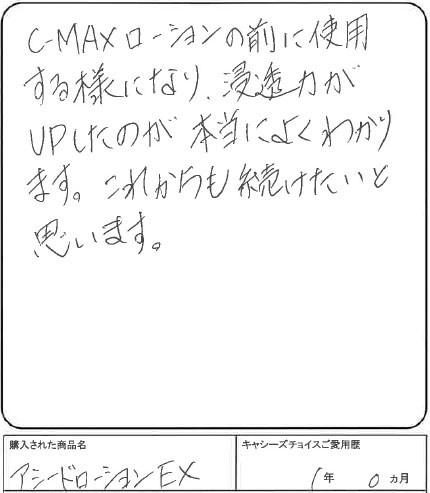 C-MAXローションの前に使用
する様になり、浸透力が
UPしたのが本当によくわかり
ます。これからも続けたいと
思います。
購入された商品名
キャシーズチョイスご愛用歴
アシードローションEX
1年 0ヵ月